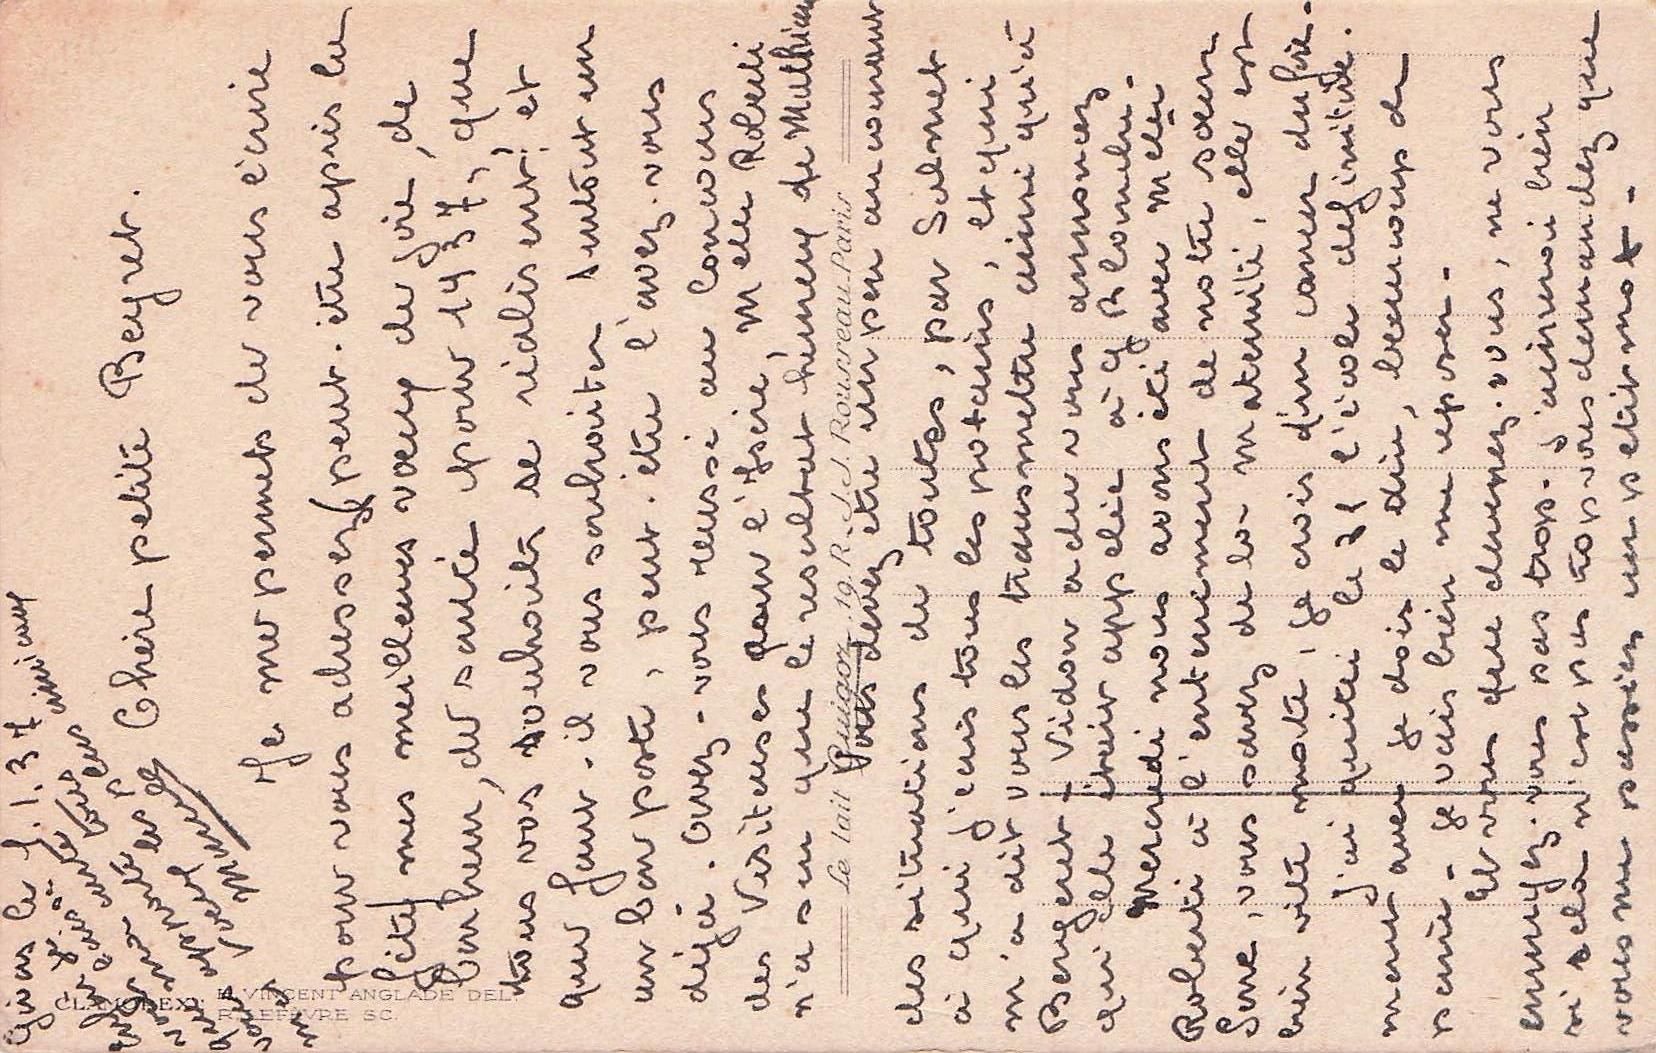 Givors le 5.1.37
Chère petite Beyret.
Je me permets de vous écrire
pour vous adresser (peut-être après les
fêtes) mes meilleurs vœux de joie, de
bonheur, de santé pour 1937, que
tous vos souhaits se réalisent, et
que faut-il vous souhaiter surtout un
un bon poste, peut-être l'avez-vous
déjà. Avez-vous réussi au Concours
des Visiteuses pour l'Isère, Melle Roberti
n'a su que le resultat heureux de Mathieu
Vous devez être un peu au courant
des situations de toutes, par Submet
à qui j'ecris tous les potains, et qui
m'a dit vous les transmettre ainsi qu'à
Beyret - Vidon a du vous annoncez
qu'elle était applée à Plombu.
Mercredi nous avons été avec Melle
Roberti à l'enterrement de notre sœur
Gene, vous savez de la Maternité, elle est
bien vite morte, je crois d'un cancer du foie.
J'ai quitté le 31 l'école definitivte.
ment avec je dois le dire, beaucoup de
peine - je vais bien me réposer -
Et vous que devenez-vous, ne vous
ennuyez-vous pas trop - j'aimerai bien
si cela n'est pas trop vous demandez que
vous me passiez un petit mot -
amicaux
Le lait Guigoz, 19, R. J.J. Rousseau, Paris
CLAMOREX:
H. VINCENT ANGLADE DEL.
R. LEFEVRE SC.